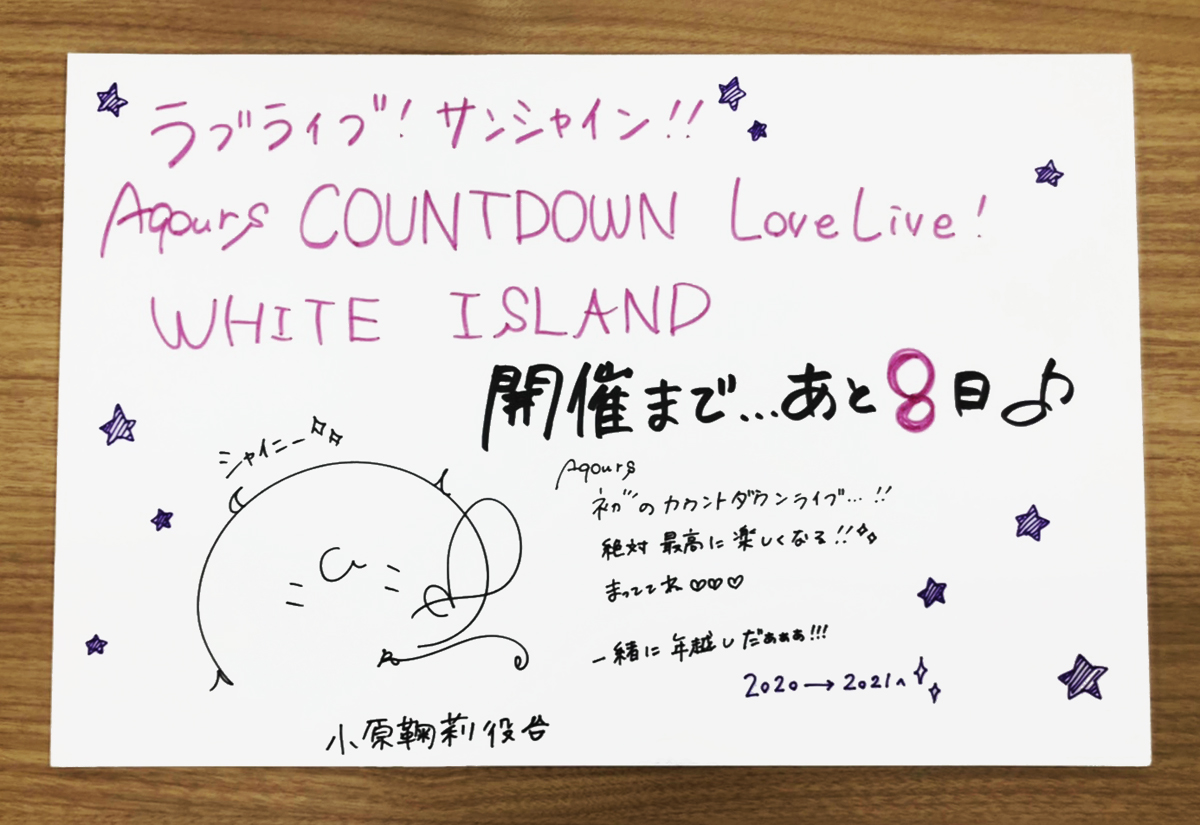 ラブライブ！サンシャイン!!
Aqours COUNTDOWN LoveLive!
WHITE ISLAND
開催まで…あと8日♪
シャイニー
Aqours
初のカウントダウンライブ…!!
絶対最高に楽しくなる!!
まっててネ♡♡♡
一緒に年越しだぁぁぁ!!!
2020→2021へ
小原鞠莉役